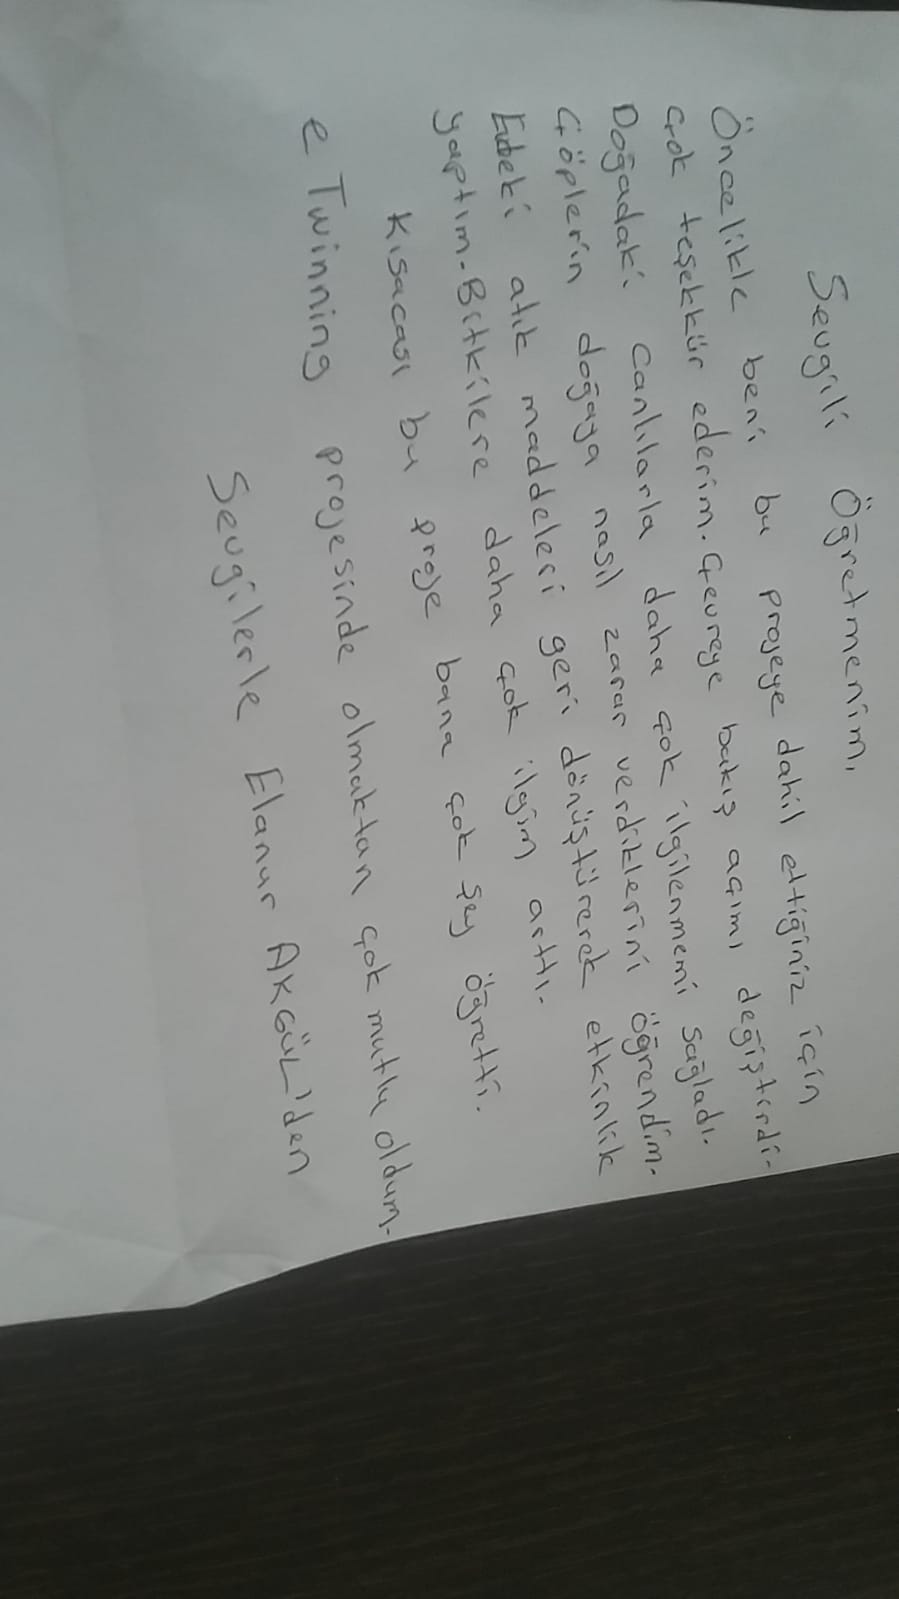 Sevgili Öğretmenim,
Öncelikle beni bu projeye dahil ettiğiniz için
çok teşekkür ederim. Çevreye bakış açımı değiştirdi.
Doğadaki canlılarla daha çok ilgilenmemi sağladı.
Çöplerin doğaya nasıl zarar verdiklerini öğrendim.
Evdeki atık maddeleri geri dönüştürerek etkinlik
yaptım. Bitkilere daha çok ilgim arttı.
Kısacası bu proje bana çok şey öğretti.
e Twinning projesinde olmaktan çok mutlu oldum.
Sevgilerle Elanur AKGÜL'den